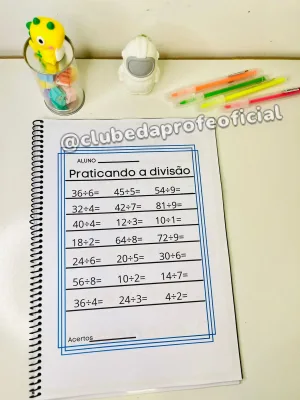 @clubedaprofeoficial
ALUNO
Praticando a divisão
36÷6= 45÷5= 54÷9=
32÷4= 42÷7= 81÷9=
40÷4= 12÷3= 10÷1=
18÷2= 64÷8= 72÷9=
24÷6= 20÷5= 30÷6=
56÷8= 10÷2= 14÷7=
36÷4= 24÷3= 4÷2=
Acertos